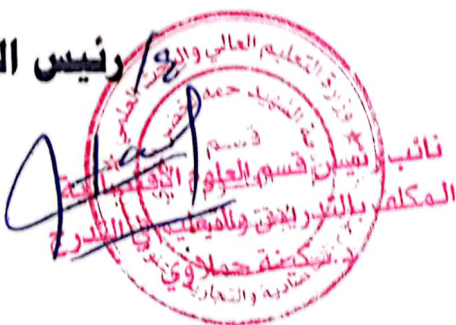 ع/ رئيس ال
وزارة التعليم العالي والبحث العلمي
الشهيد حمه لخضر
قسم
نائب رئيس قسم العلوم الاقتصادية
المكلف بالتدريس والتعليم في التدرج
د. سكينة حملاوي